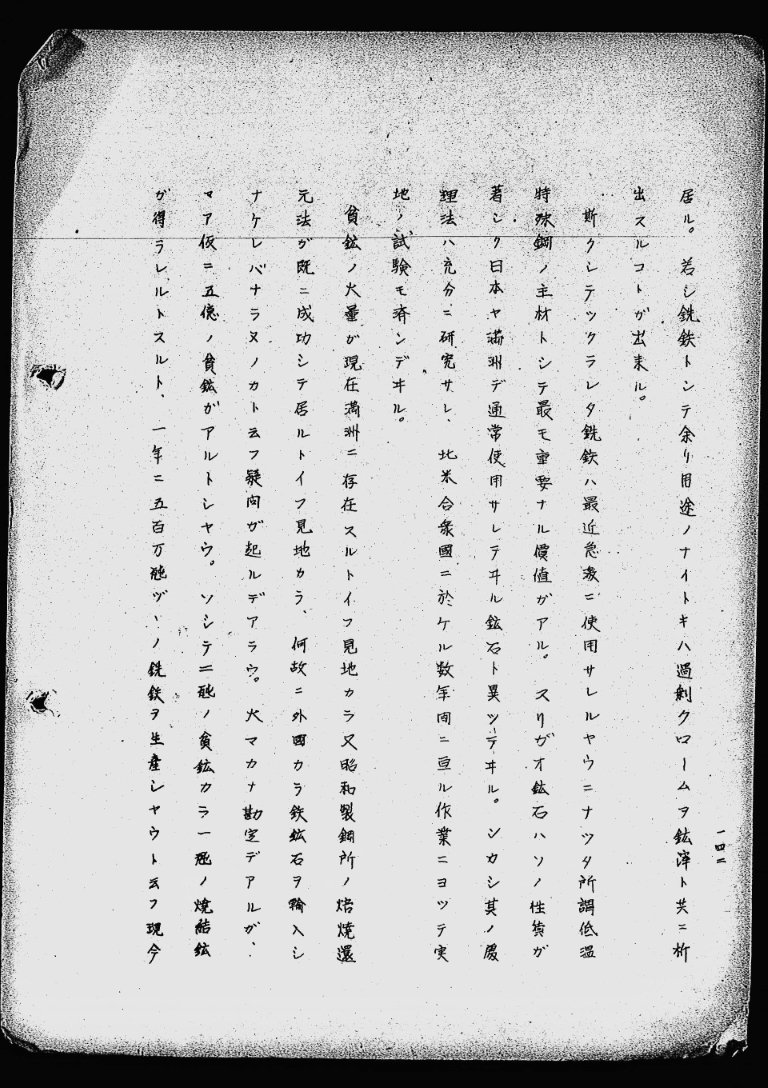 一四二
居ル。若シ銑鉄トシテ余リ用途ノナイトキハ過剰クロームヲ鉱滓ト共ニ析
出スルコトガ出来ル。
斯クシテツクラレタ銑鉄ハ最近急激ニ使用サレルヤウニナツタ所謂低温
特殊鋼ノ主材トシテ最モ重要ナル價値ガアル。スリガオ鉱石ハソノ性質ガ
著シク日本ヤ満洲デ通常使用サレテヰル鉱石ト異ツテヰル。シカシ其ノ處
理法ハ充分ニ研究サレ、北米合衆國ニ於ケル数年间ニ亘ル作業ニヨツテ実
地ノ試験モ済ンデヰル。
貧鉱ノ大量が現在満洲ニ存在スルトイフ見地カラ又昭和製鋼所ノ焙焼還
元法ガ既ニ成功シテ居ルトイフ見地カラ、何故ニ外國カラ鉄鉱石ヲ輸入シ
ナケレバナラヌノカト云フ疑问が起ルデアラウ。大マカナ勘定デアルガ、
マア仮ニ五億ノ貧鉱ガアルトシヤウ。ソシテ二瓲ノ貧鉱カラ一瓲ノ焼結鉱
が得ラレルトスルト、一年ニ五百万瓲ヅヽノ銑鉄ヲ生産シヤウト云フ現今